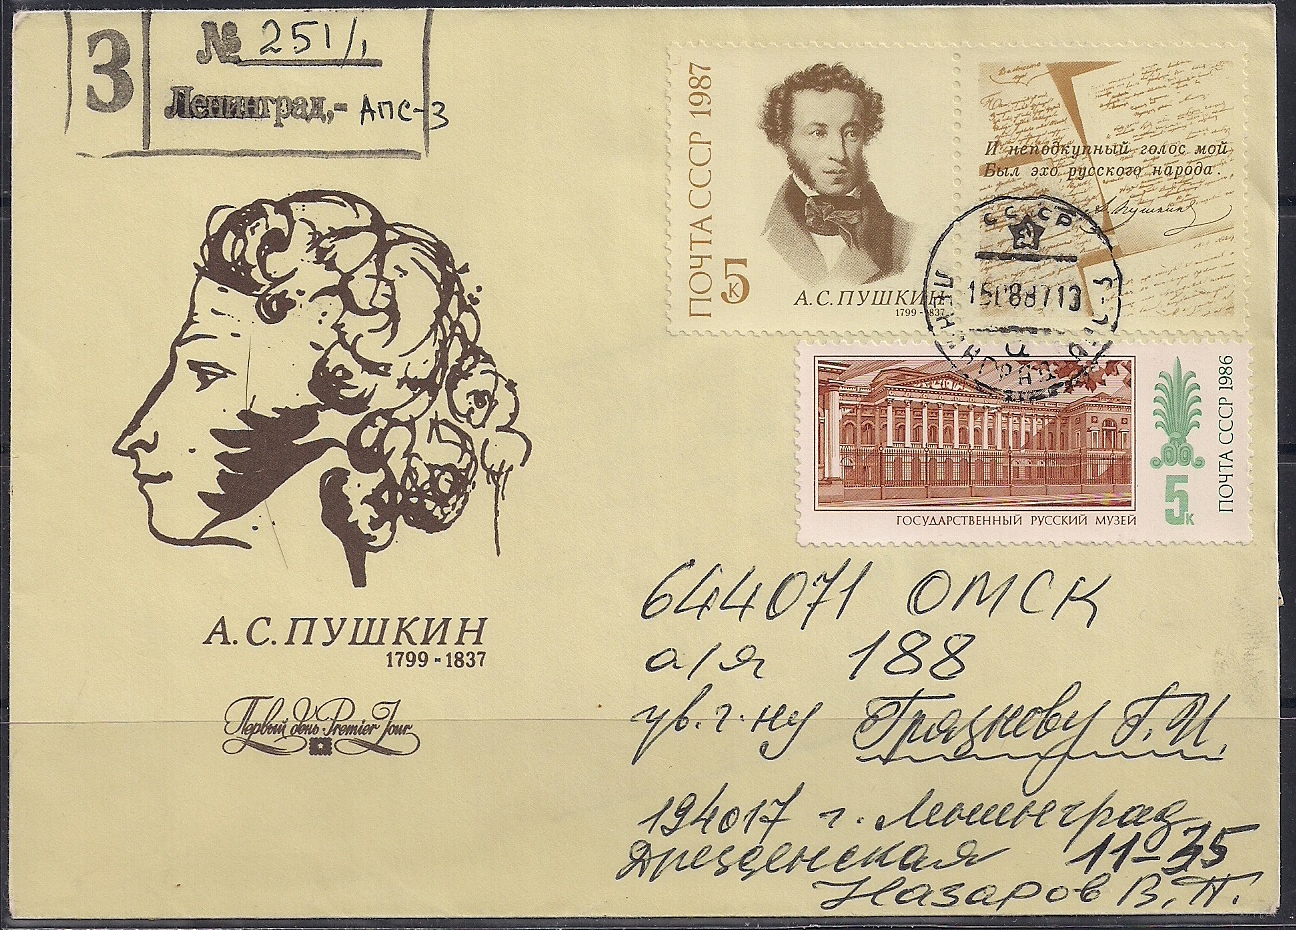 З
№ 251/1
Ленинград,- АПС-3
ПОЧТА СССР 1987
5 к
А.С.ПУШКИН
1799-1837
И неподкупный голос мой
Был эхо русского народа.
А. Пушкин
СССР
ЛЕНИНГРАД
ГОСУДАРСТВЕННЫЙ РУССКИЙ МУЗЕЙ
5 к
ПОЧТА СССР 1986
А.С.ПУШКИН
1799 - 1837
Первый день Premier Jour
644071 ОМСК
а/я 188
ув. г-ну Грязнову Г. И.
194017 г. Ленинград
Дрезденская 11-35
Назаров В. П.